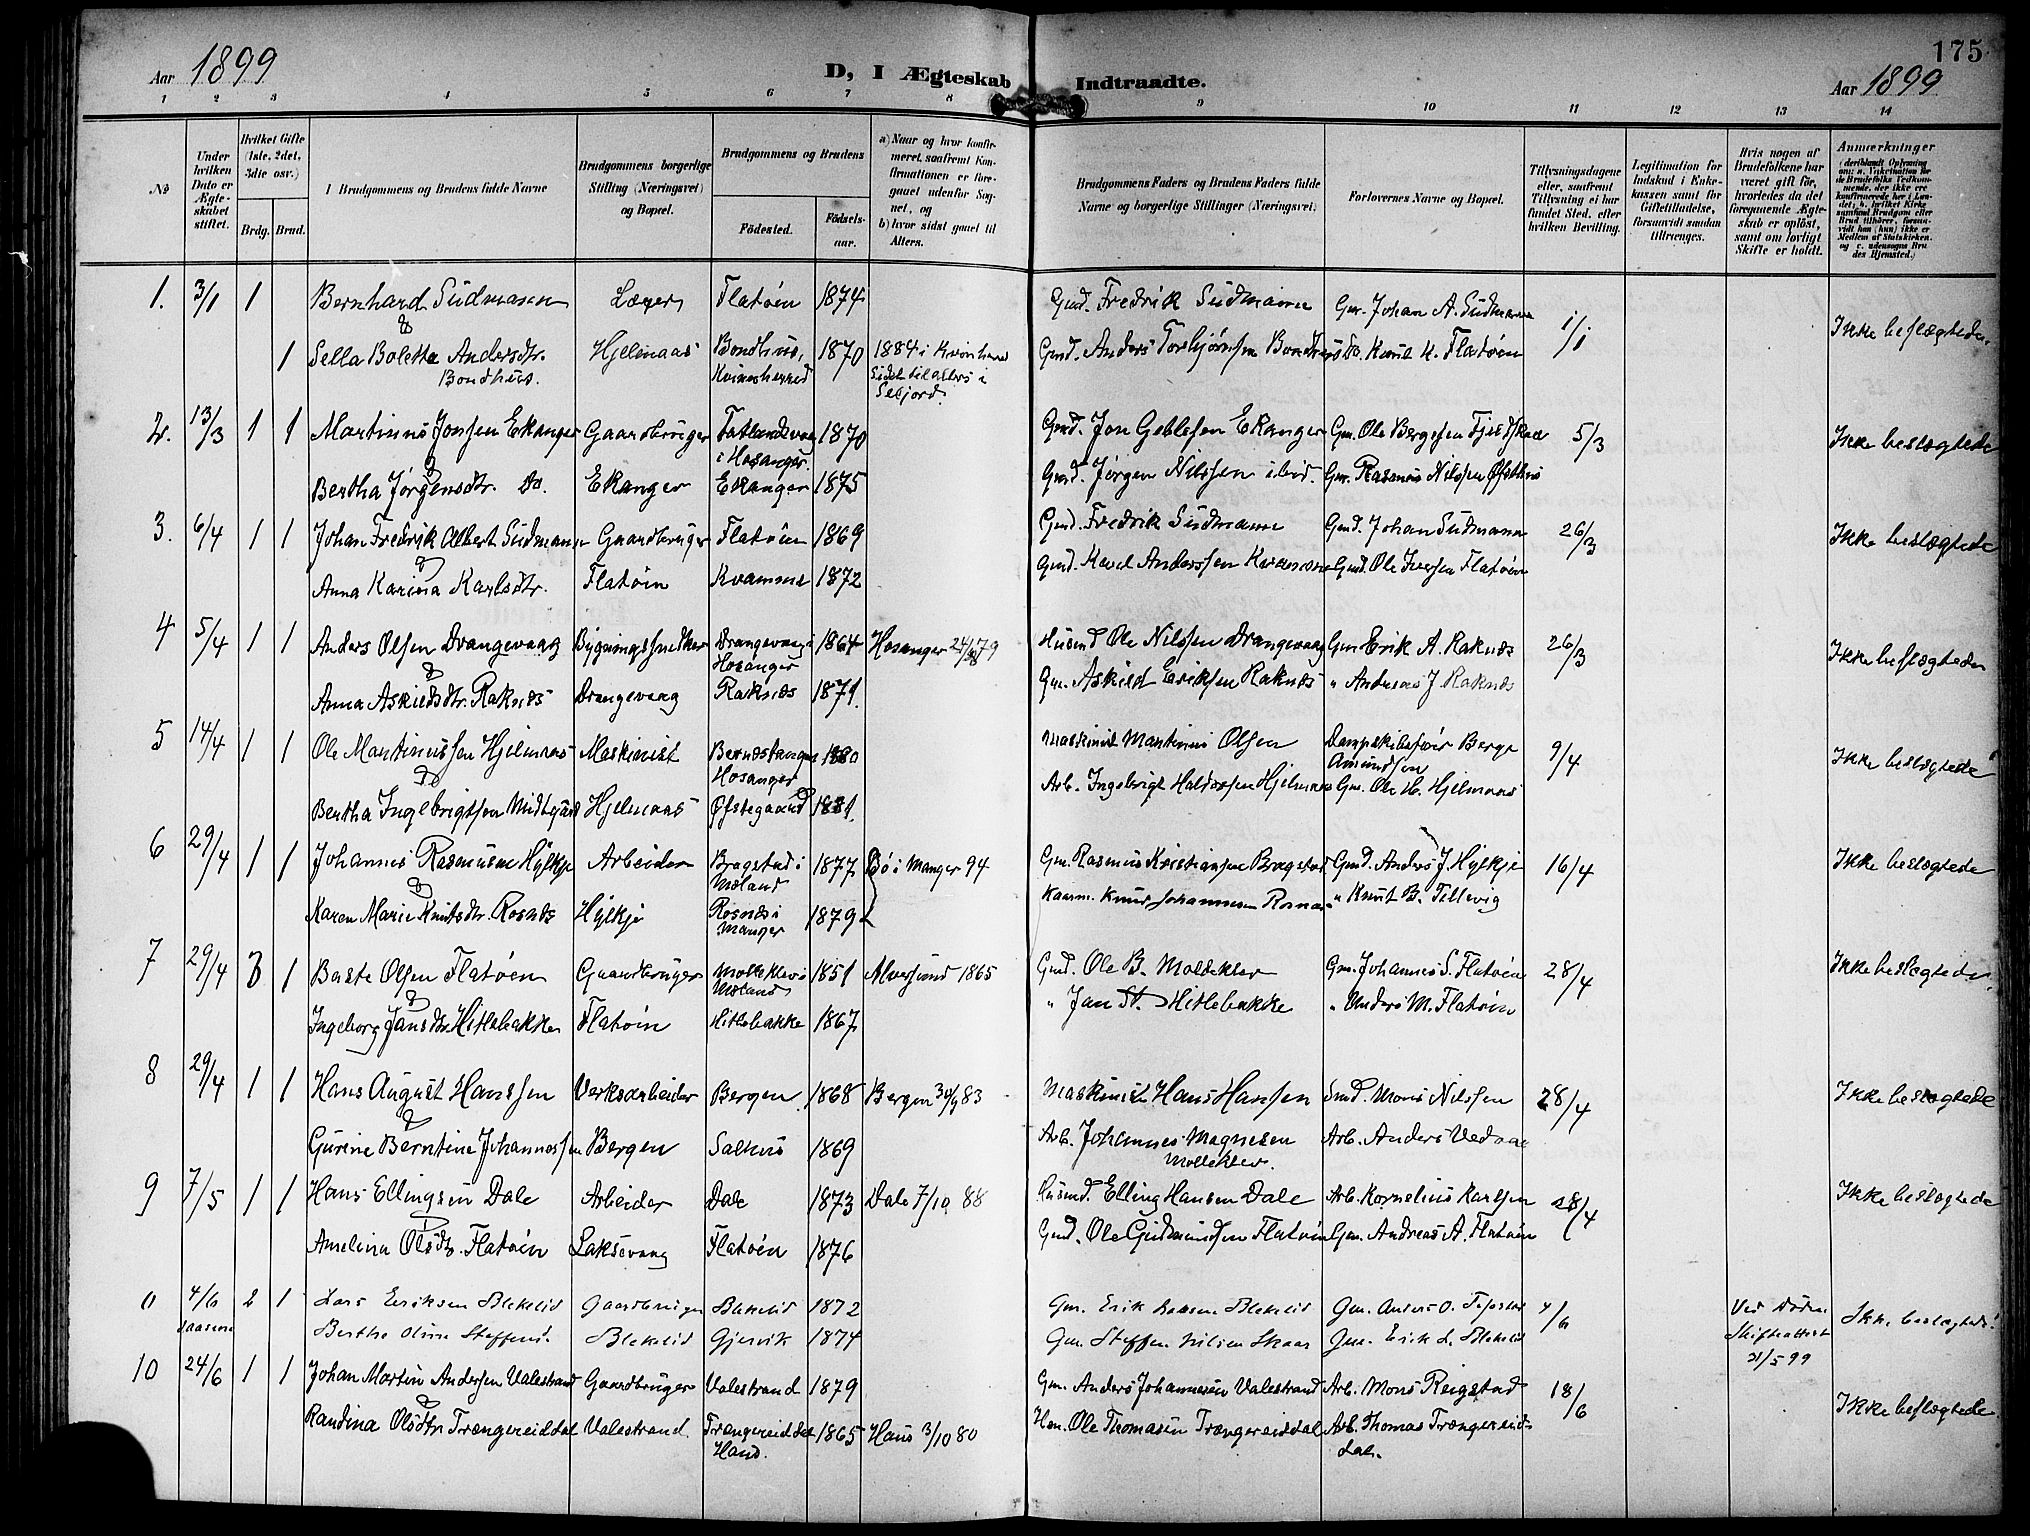 175
Aar 1899
D, I Ægteskab Indtraadte.
Aar 1899
1 2 3 4 5 6 7 8 9 10 11 12 13 14
No
Under hvilken Dato er Ægteskabet stiftet.
Hvilket Gifte (1ste, 2det, 3die osv.)
Brdg. Brud.
Brudgommens og Brudens fulde Navne
Brudgommens borgerlige Stilling (Næringsvei) og Bopæl.
Brudgommens og Brudens
Födested.
Födsels-aar.
a) Naar og hvor konfirmeret, saafremt Konfirmationen er foregaaet udenfor Sognet, og
b) hvor sidst gaaet til Alters.
Brudgommens Faders og Brudens Faders fulde Navne og borgerlige Stillinger (Næringsvei)
Forlovernes Navne og Bopæl.
Tillysningsdagene eller, saafremt Tillysning ei har fundet Sted, efter hvilken Bevilling.
Legitimation for Indskud i Enkekassen samt for Giftetilladelse, forsaavidt saadan tiltrænges.
Hvis nogen af Brudefolkene har været gift för, hvorledes da det foregaaende Ægteskab er oplöst, samt om lovligt Skifte er holdt.
Anmærkninger
1. 3/1 1 Bernhard Sudmann Læger Flatøen 1874 Gmd. Fredrik Sudmann Gm. Johan A. Sudmann 1/1 Ikke beslægtede.
&
1 Sella Boletta Andersdtr. Bondhus. Hjelmaas Bondhus, Kvinnherred 1870 1884 i Kvinherred Sidst til alters i Seljord. Gmd. Anders Torbjørnsen Bondhus Do. Knut K. Flatøen
2. 13/3 1 1 Martinus Jonsen Ekanger Gaardbruger i Hosanger. 1870 Gmd. Jon Geblesen Ekanger Gm. Ole 5/3 Ikke beslægtede
&
Bertha Jørgensdtr. Do. Ekanger Ekanger 1875 Gmd. Jørgen Nilssen ibid. Gm. Rasmus Nilssen
3. 6/4 1 1 Johan Fredrik Albert Sudmann Gaardbruger Flatøen 1869 Gmd. Fredrik Sudmann Gmd. Johan Sudmann 26/3 Ikke beslægtede
&
Anna Karina Karlsdtr. Flatøen Kvamme 1872 Gmd. Karl Anderssen Kvamme Gmd. Ole Iversen Flatøen
4 5/4 1 1 Anders Olsen Drangevaag Bygningssnedker Drangevaag Hosanger 1864 Hosanger Husmd Ole Nilssen Drangevaag Gm Erik A. Raknes 26/3 Ikke beslægtede
&
Anna Askildsdtr. Raknes Drangevaag Raknes 1871. Gm. Askild Eriksen Raknes " Andreas J. Raknes
5 14/4 1 1 Ole Martinussen Hjelmaas Maskinist Hosanger 1880 Maskinist Martinus Olsen Dampskibsfører Berge Amundsen 9/4 Ikke beslægtede
&
Bertha Ingebrigtsen Midtgård Hjelmaas Øfstegaard 1881. Arb. Ingebrigt Haldorssen Hjelmaas Gm. Ole H. Hjelmaas
6 29/4 1 1 Johannes Rasmussen Hylkje Arbeider Bragstad i Mæland 1877 Bø i Manger 94 Gm. Rasmus Kristiansen Bragstad Gmd. Anders J. Hylkje 16/4 Ikke beslægtede
&
Karen Marie Knutsdtr. Rosnes Hylkje Rosnes i Manger 1879 Kaarm. Knud Johannesen Rosnes " Knut B. Tellevig
7 29/4 3 1 Baste Olsen Flatøen Gaardbruger Molleklev i Mæland 1851 Alversund 1865 Gmd. Ole B. Moldeklev Gm. Johannes S. Flatøen 28/4 Ikke beslægtede.
&
Ingeborg Jansdtr. Hitlebakke Flatøen Hitlebakke 1867 " Jan St. Hitlebakke " Anders M. Flatøen
8 29/4 1 1 Hans August Hanssen Verksarbeider Bergen 1868 Bergen 83 Maskinist Hans Hansen Smd. Mons Nilssen 28/4 Ikke beslægtede
&
Gurine Berntine Johannessen Bergen Salhus 1869 Arb. Johannes Magnesen Molleklev. Arb. Anders Vedaa
9 7/5 1 1 Hans Ellingsen Dale Arbeider Dale 1873 Dale 7/10 88 Husmd. Elling Hansen Dale Arb. Kornelius Karlsen 28/4 Ikke beslægtede
&
Amelina Olsdtr. Flatøen Laksevaag Flatøen 1876 Gmd. Ole Gudmundsen Flatøen Gm. Andreas A. Flatøen
0 4/6 2 1 Lars Eriksen Blekelid Gaardbruger Blekelid 1872 Gm. Erik Larsen Blekelid Gm. Anders O. 4/6 Ved Døden. Skifteattest 31/5 99 Ikke beslægtede!
Berthe Oline Steffens. Blekelid Gjervik 1874 Gm. Steffen Nilsen Skaar Gm. Erik L. Blekelid
10 24/6 1 1 Johan Martin Andersen Valestrand Gaardbruger Valestrand 1879 Gm. Anders Johannesen Valestrand Arb. Mons Reigstad 18/6 Ikke beslægtede
&
Randina Olsdtr. Trængereiddal Valestrand. Trængereiddal Haus. 1865 Haus 3/10 80 Hm. Ole Thomasen Trængereiddal Arb. Thomas Trængereiddal.